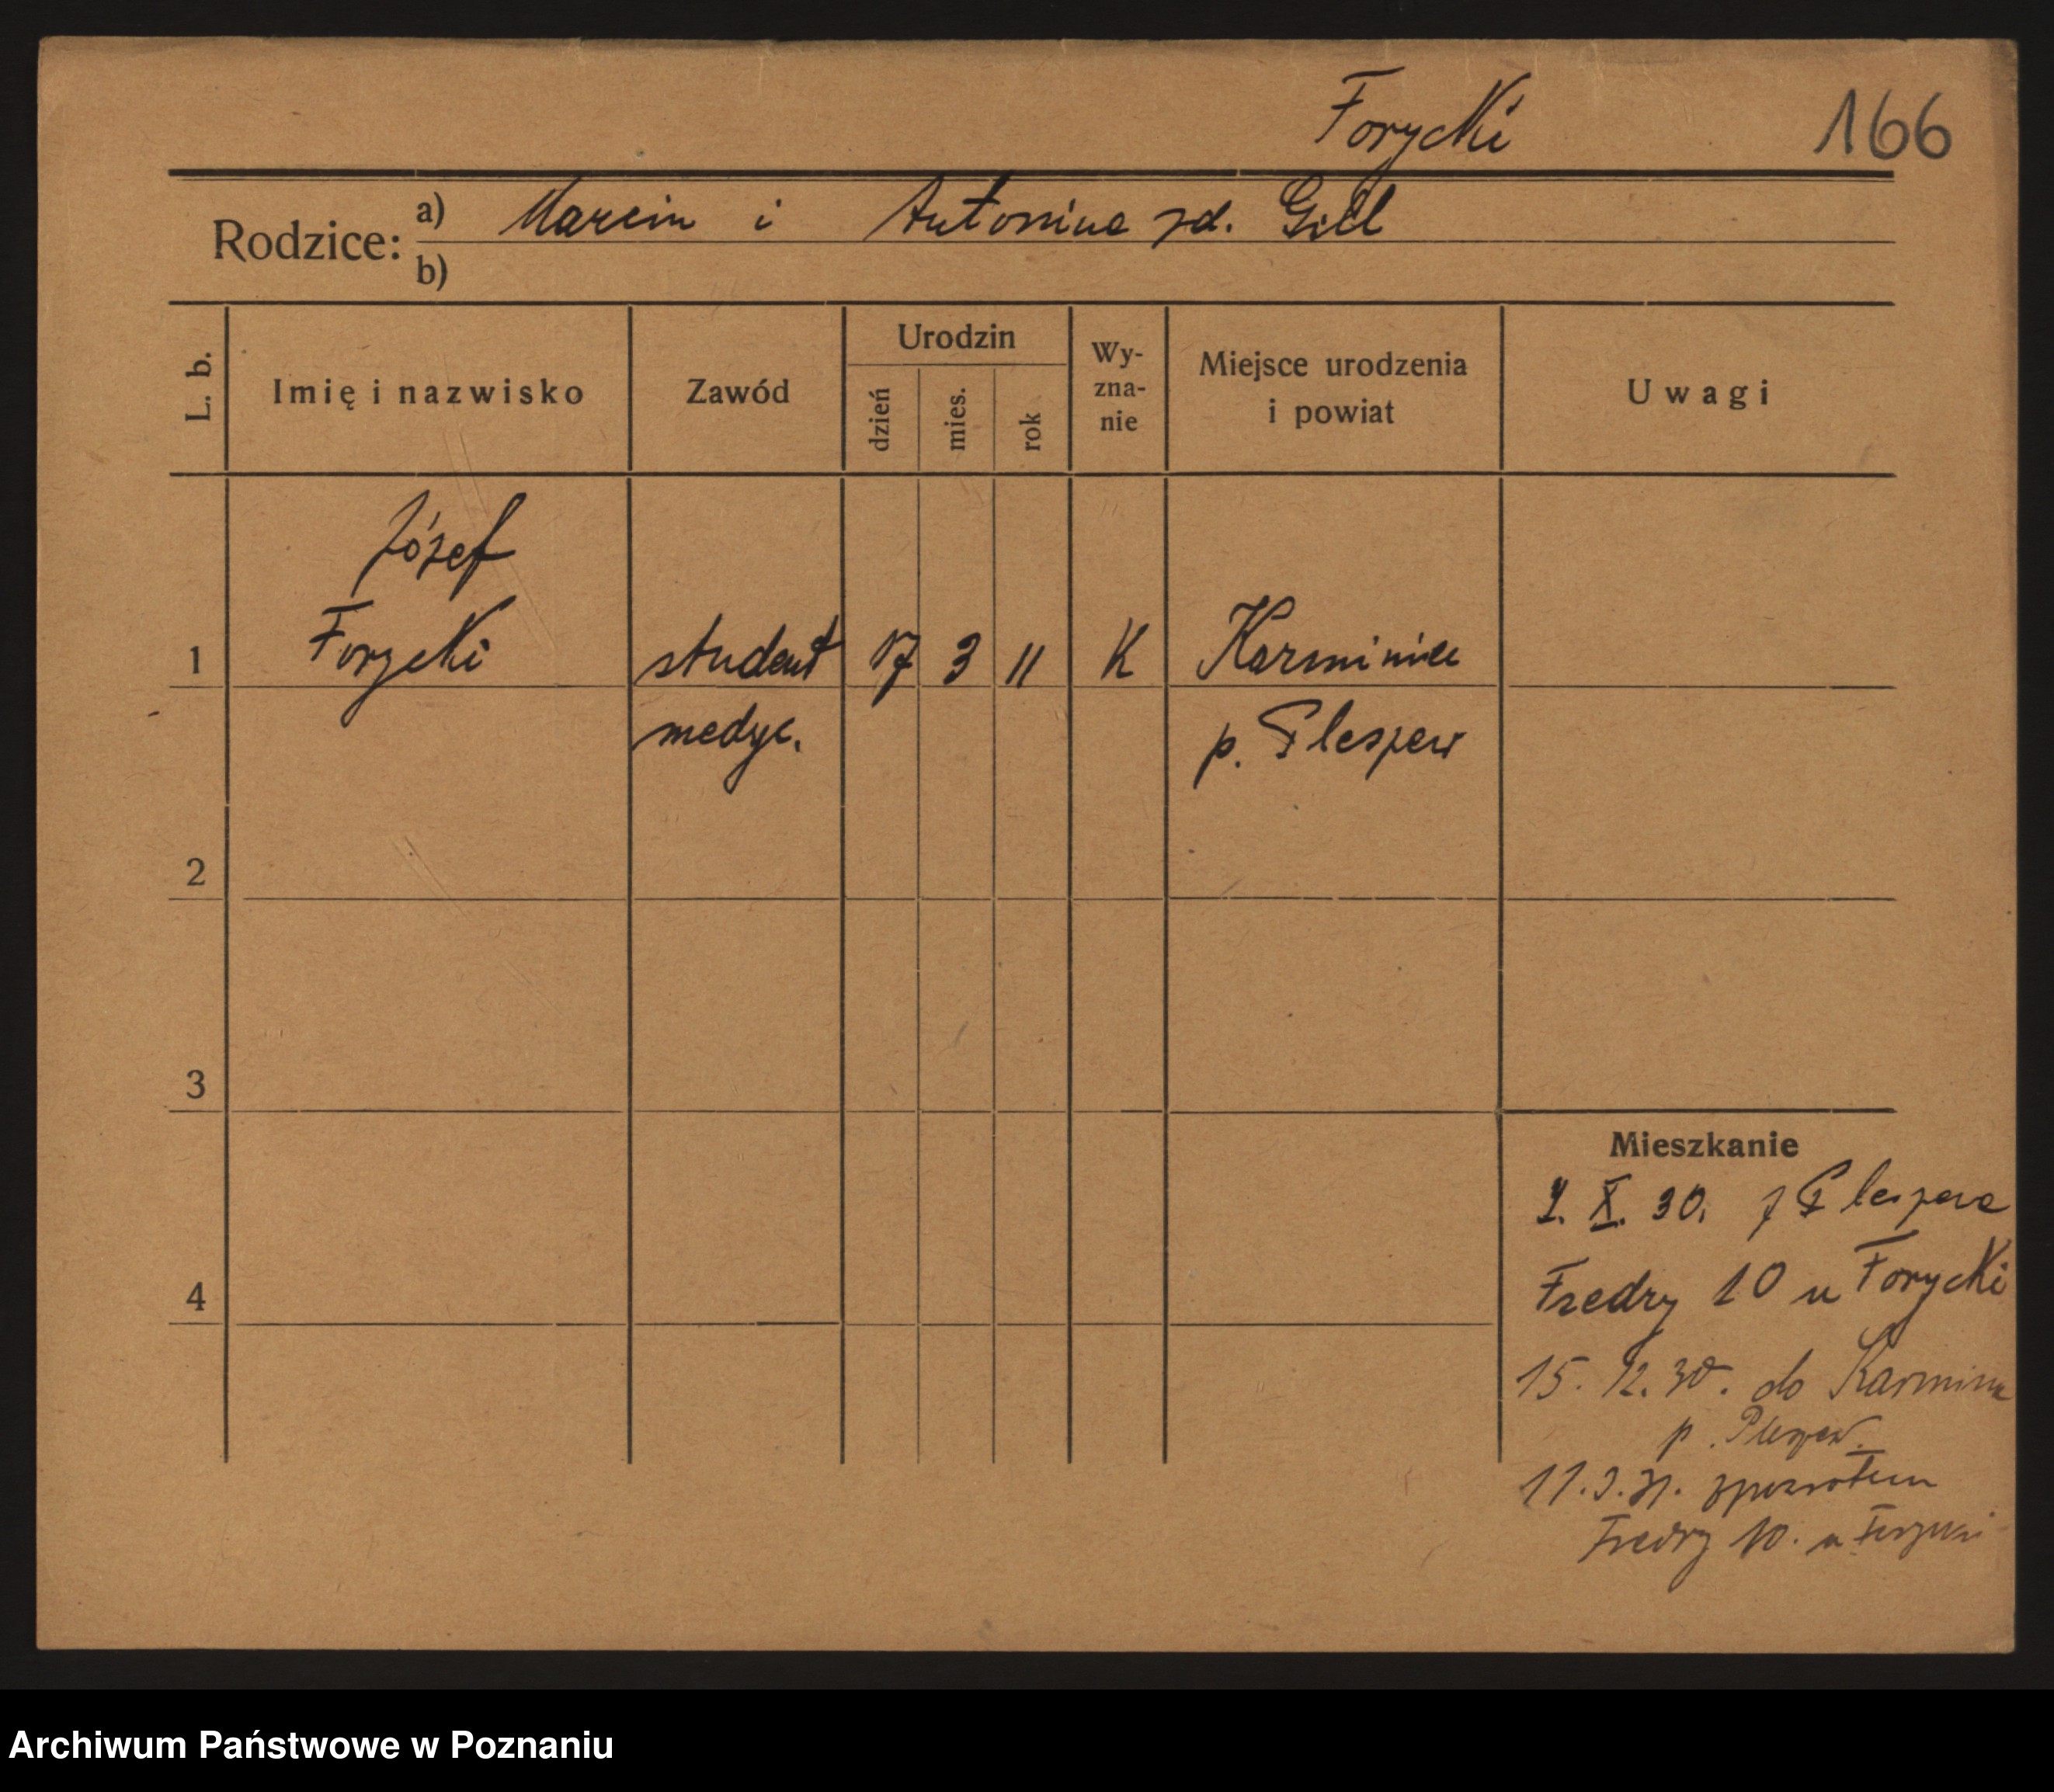 Forycki
166
Rodzice:
a) Marcin i Antonina zd. Gill
b)
L. b.
Imię i nazwisko
Zawód
Urodzin
dzień
mies.
rok
Wy-
zna-
nie
Miejsce urodzenia
i powiat
Uwagi
Józef
1 Forycki student 17 3 11 K Karminiec
medyc. p. Pleszew
2
3
4
Mieszkanie
2. X. 30. z Pleszewa
Fredry 10 u Forycki
15. 12. 30. do Karmina
p. Pleszew.
11. 3. 31. zpowrotem
Fredry 10. u Forycki
Archiwum Państwowe w Poznaniu